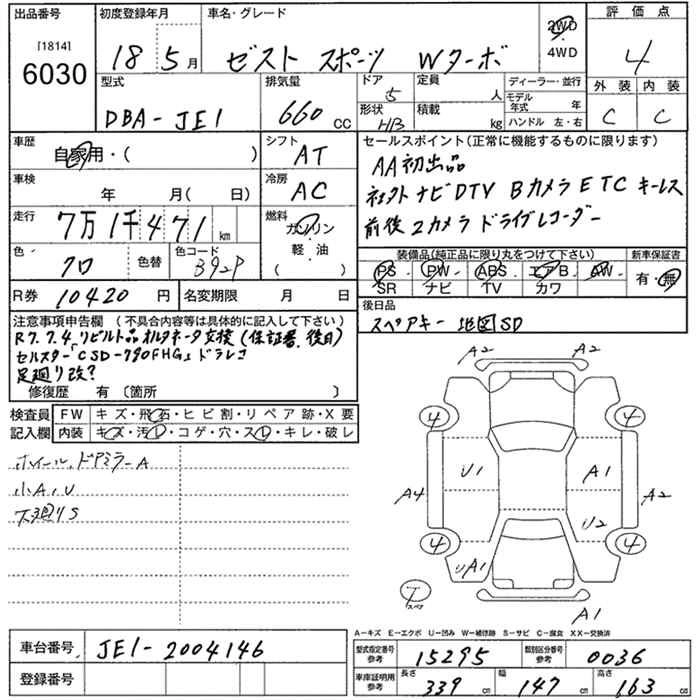 出品番号 初度登録年月 車名・グレード 評価点
[1814]
6030
18 5月 ゼスト スポーツ Wターボ
2WD
4WD
4
型式 排気量 ドア 定員 ディーラー・並行 外装 内装
DBA-JE1 660cc 5 人 モデル年式 年 C C
形状 積載 ハンドル 左・右
HB kg
車歴 シフト セールスポイント(正常に機能するものに限ります)
自家用・( ) AT AA初出品
車検 冷房
年 月( 日) AC 社外ナビDTV Bカメラ ETC キーレス
走行 燃料 前後2カメラ ドライブレコーダー
7万1千471km ガソリン
軽・油
( )
色 色替 色コード 装備品(純正品に限り丸をつけて下さい) 新車保証書
クロ PS・PW・ABS・エアB・AW・ 有・無
SR ナビ TV カワ
R券 10420円 名変期限 月 日 後日品
スペアキー 地図SD
注意事項申告欄 (不具合内容等は具体的に記入して下さい)
R7.7.4.リビルト品オルタネータ交換(保証書、後日)
セルスター CSD-790FHG、ドラレコ
足廻り改?
修復歴 有 〔箇所 〕
検査員 FW キズ・飛石・ヒビ割・リペア跡・X要
記入欄 内装 キズ・汚レ・コゲ・穴・スレ・キレ・破レ
ホイール、ドアミラーA
小A、U
下廻りS
A2 A2
4 4
U1 A1
A4 A2
U2
4 4
UA1
スペア
A1
A-キズ E-エクボ U-凹み W-補修跡 S-サビ C-腐食 XX-交換済
車台番号 JE1-2004146
型式指定番号 参考 15295 類別区分番号 参考 0036
登録番号
車庫証明用 参考 長さ 339cm 幅 147cm 高さ 163cm